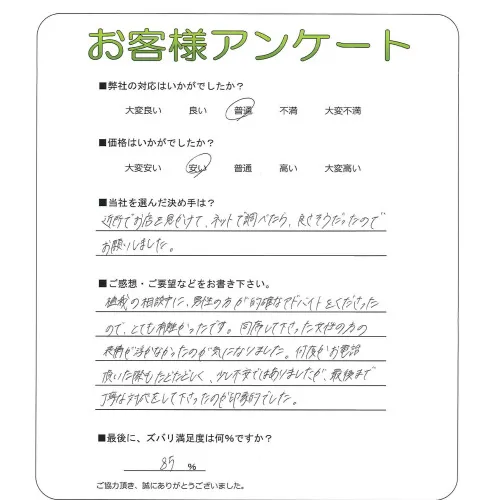 お客様アンケート
■弊社の対応はいかがでしたか？
大変良い 良い 普通 不満 大変不満
■価格はいかがでしたか？
大変安い 安い 普通 高い 大変高い
■当社を選んだ決め手は？
近所でお店を見かけて、ネットで調べたら、良さそうだったので
お願いしました。
■ご感想・ご要望などをお書き下さい。
の相談中に、男性の方が的確なアドバイスをくださった
ので、とても有難かったです。同席して下さった女性の方の
表情が浮かなかったのが気になりました。何度かお電話
頂いた際もたどたどしく、少し不安ではありましたが、最後まで
丁寧な対応をして下さったのが印象的でした。
■最後に、ズバリ満足度は何%ですか？
85 %
ご協力頂き、誠にありがとうございました。